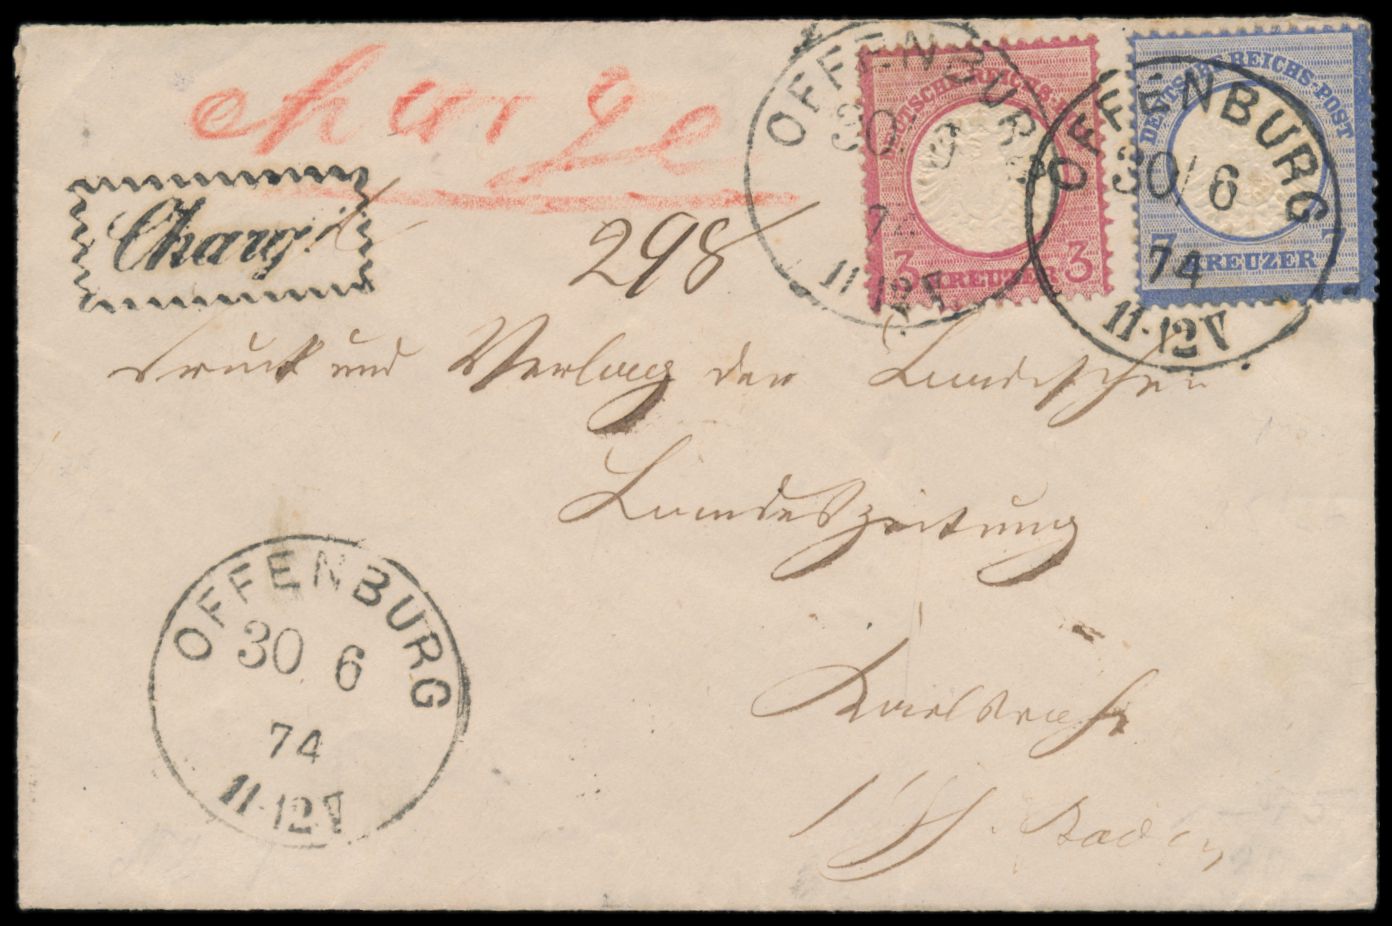 charge
Charg
298
OFFENBURG
30 6
74
11-12V
DEUTSCHE REICHS-POST
3 KREUZER 3
OFFENBURG
30/6
74
11-12V
DEUTSCHE REICHS-POST
7 KREUZER 7
Druck und Verlag der Badischen
Landeszeitung
Karlsruhe
Baden
OFFENBURG
30 6
74
11-12V